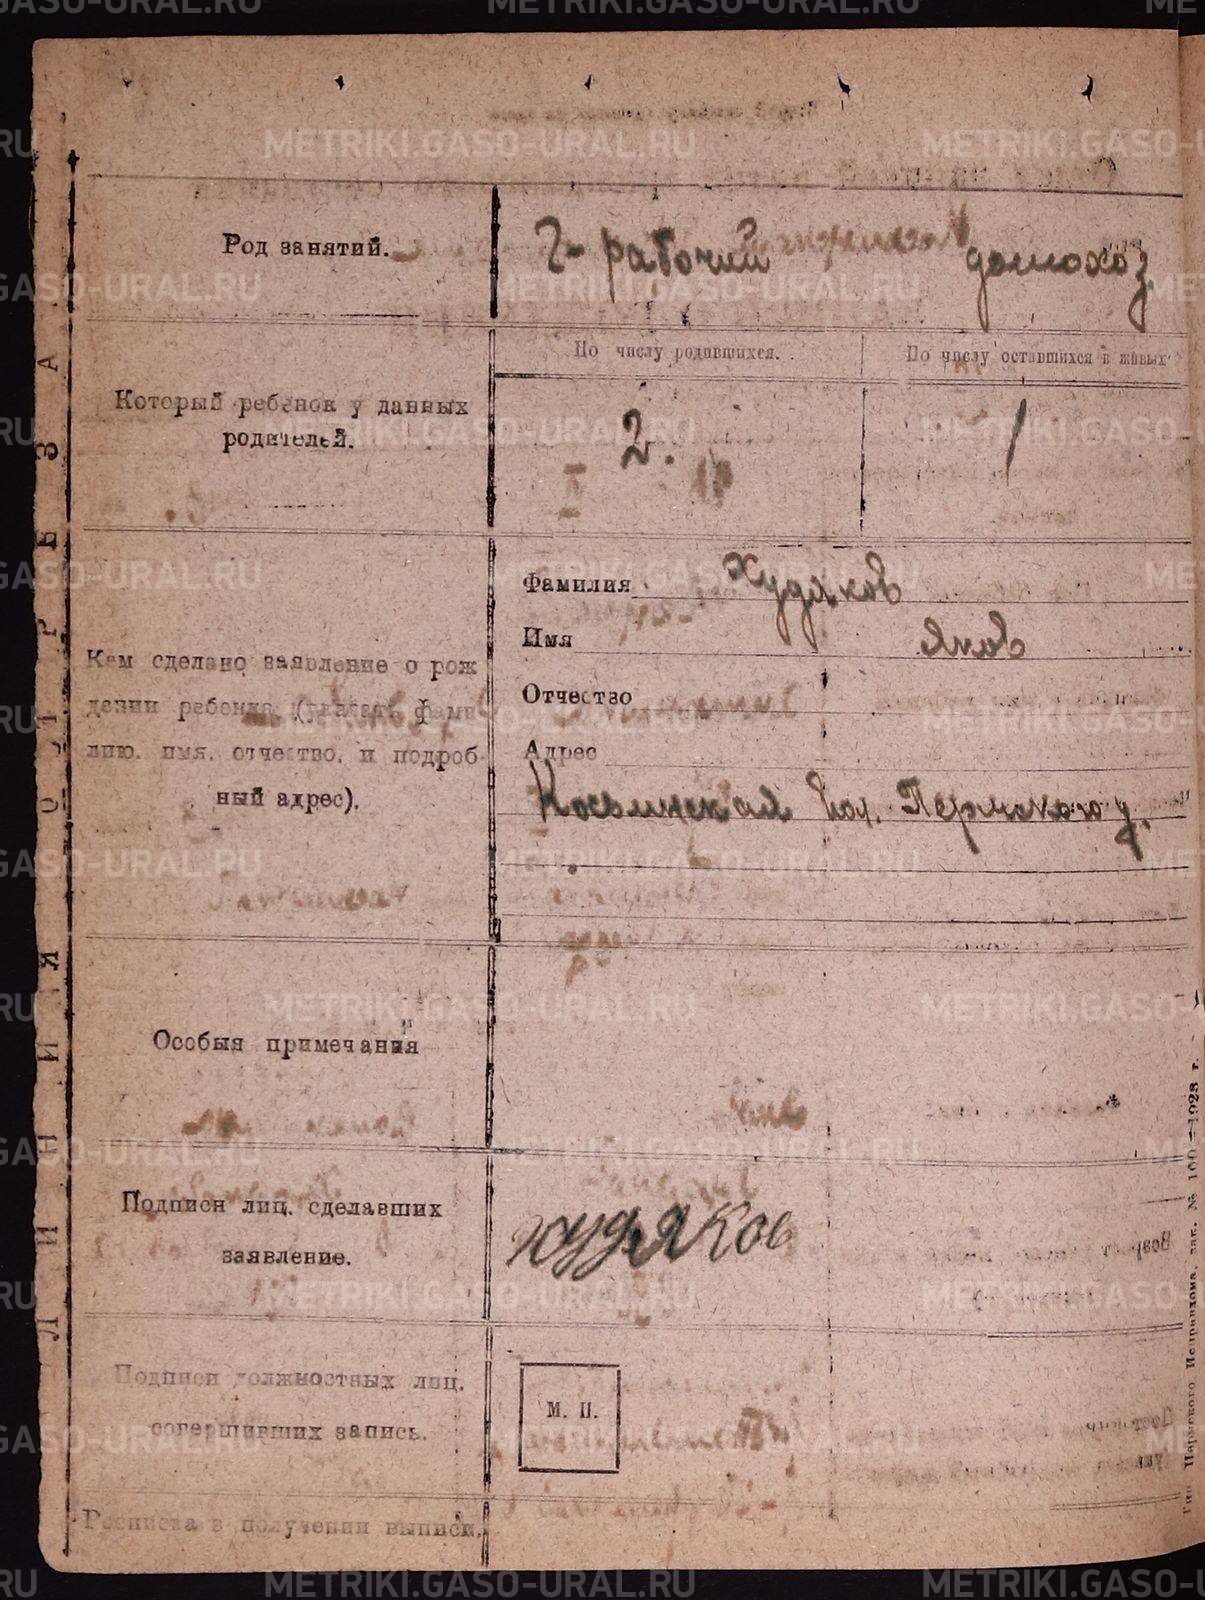 METRIKI.GASO-URAL.RU
Род занятий.
рабочий
домохоз.
По числу родившихся.
По числу оставшихся в живых
Который ребенок у данных
родителей.
2.
1
Кем сделано заявление о рож
дении ребенка (указать фами
лию, имя, отчество, и подроб
ный адрес).
Фамилия Худяков
Имя Яков
Отчество
Адрес
вол. Пермского у.
Особыя примечания
Подписи лиц, сделавших
заявление.
Худяков
Подписи должностных лиц,
совершивших запись.
М. П.
Росписка в получении выписи.
ЛИНИЯ ОТРЕЗА
зак. № 100—1923 г.